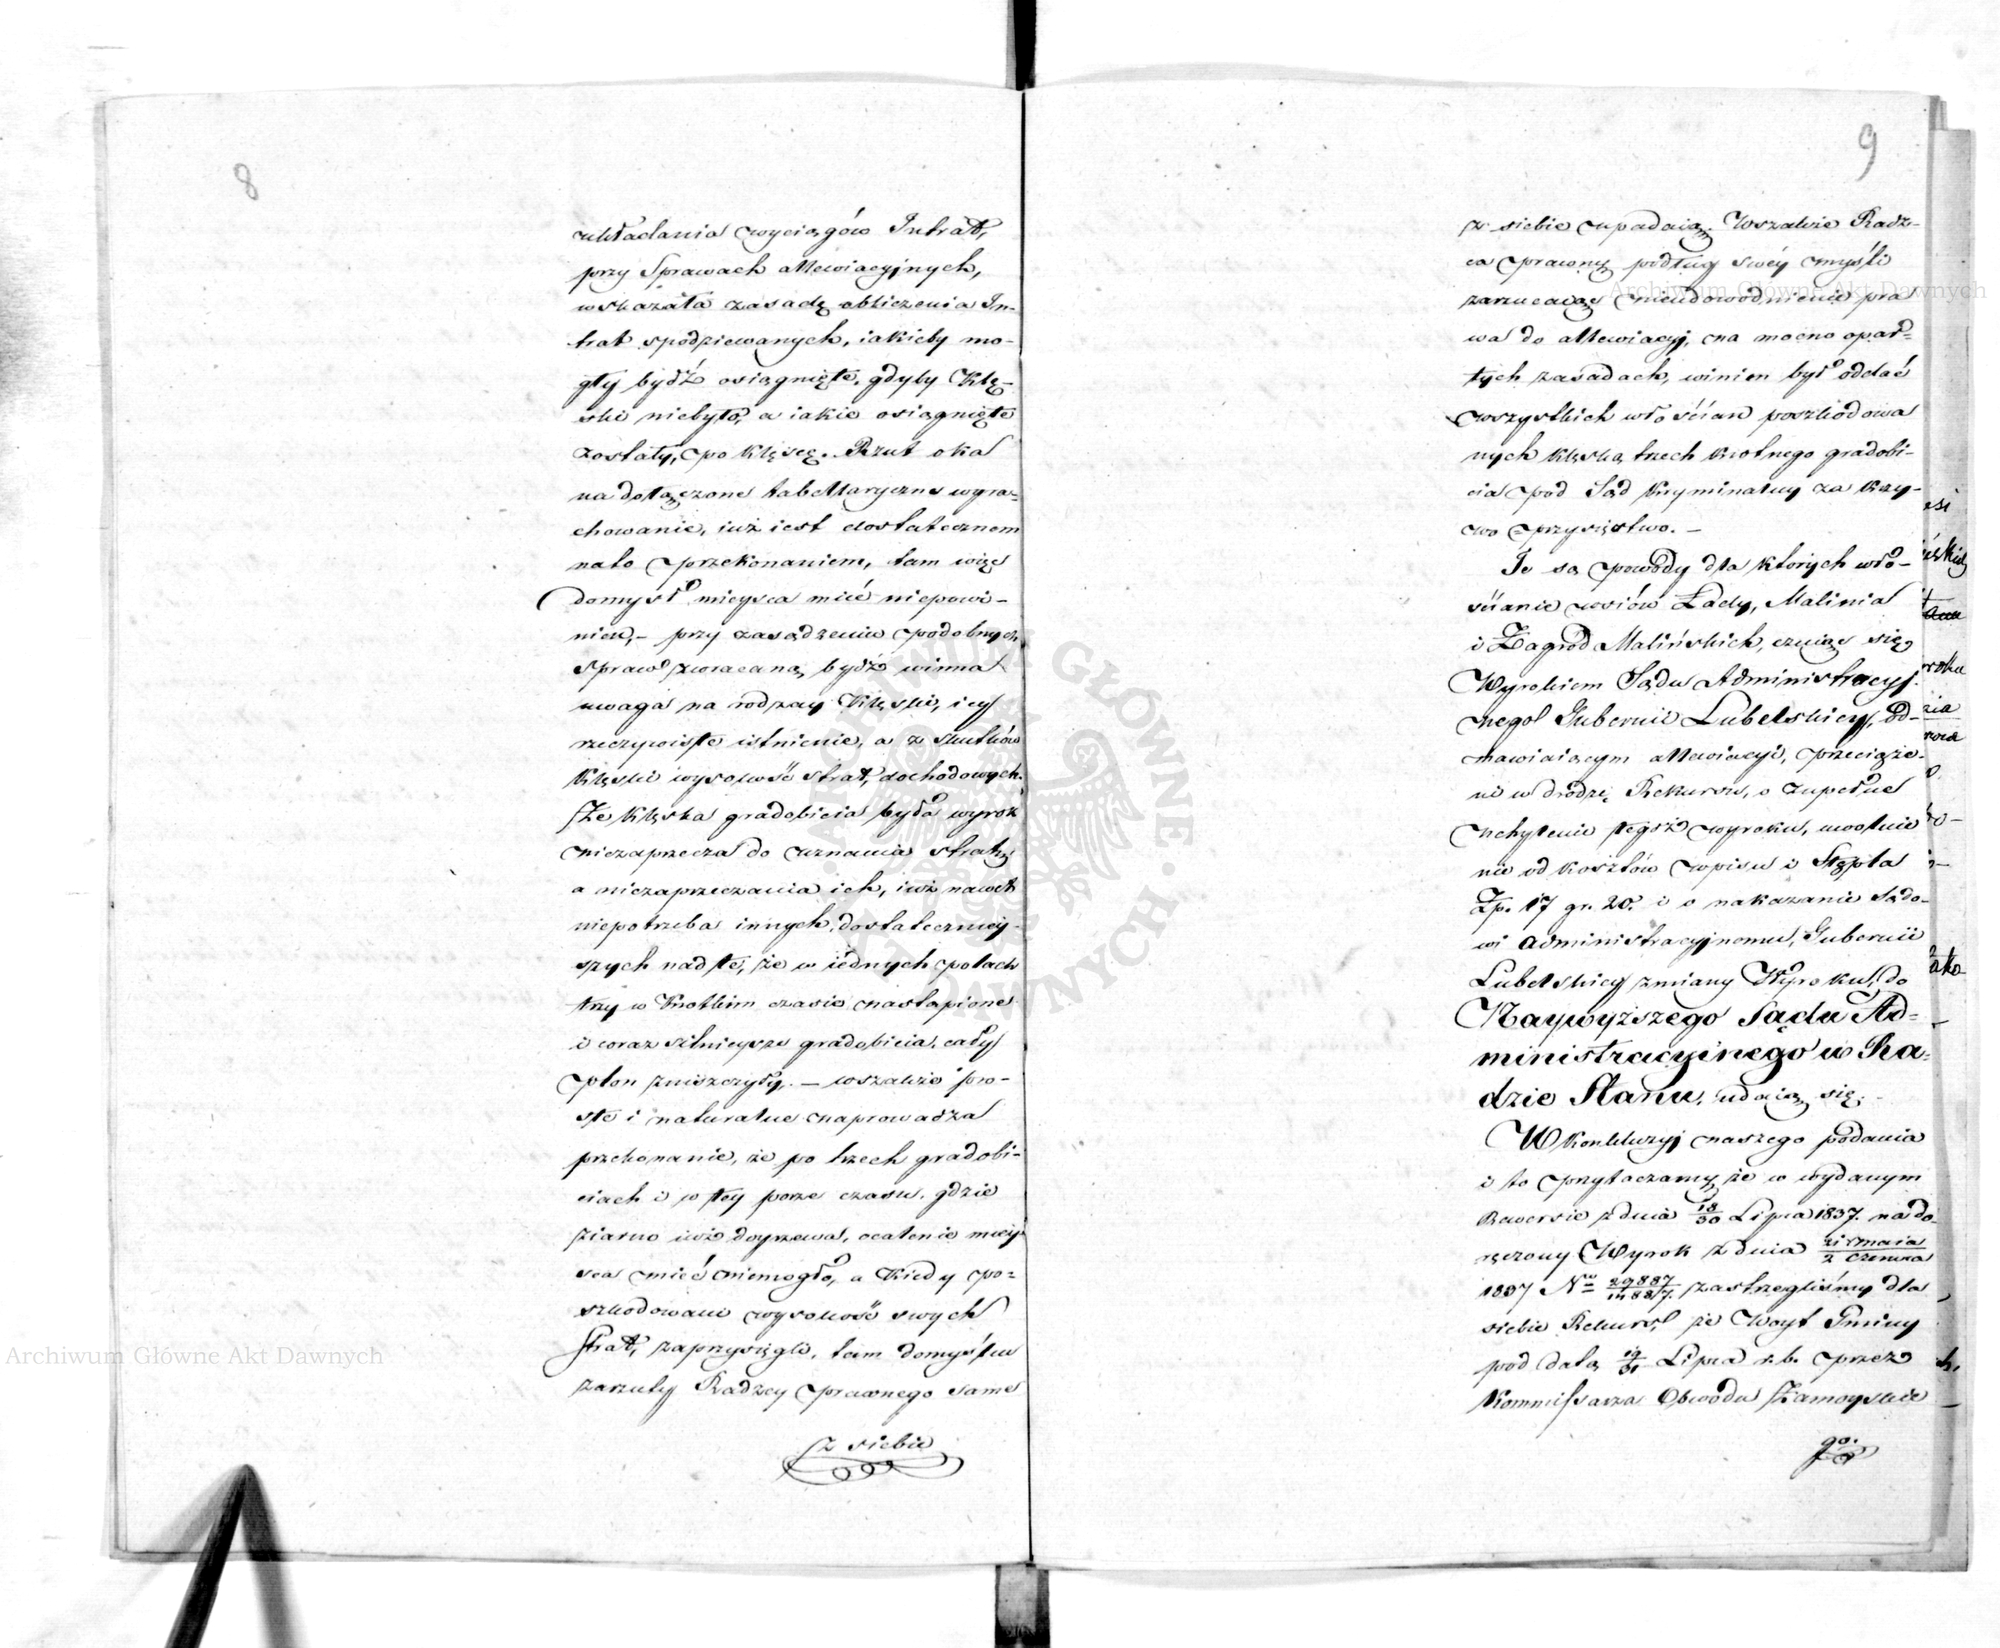 8
układania wyciągów Intrat,
przy Sprawach allewiacyjnych,
wskazała zasadę obliczenia In-
trat spodziewanych, iakieby mo-
gły bydź osiągnięte, gdyby Klę-
ski niebyło, a iakie osiągnięte
zostały, po klęsce. Rzut oka
na dołączone tabellaryczne wyra-
chowanie, iuż iest dostatecznem
nato przekonaniem, tam więc
domysł mieysca mieć niepowi-
nien, – przy zasądzeniu podobnych
Spraw zwracaną bydź winna
uwaga na rodzay Klęski, iey
rzeczywiste istnienie, a z skutków
Klęski wysokość strat, dochodowych.
Że klęska gradobicia była wyrok
niezaprzecza do uznania straty
a niezaprzeczania ich, iuż nawet
niepotrzeba innych, dostateczniey-
szych nad te, że w iednych polach
trzy w krotkim czasie nastąpione
i coraz silnieysze gradobicia, cały
plon zniszczyły. – wszakże pro-
ste i naturalne naprowadza
przekonanie, że po trzech gradobi-
ciach i w tey porze czasu, gdzie
ziarno iuż doyrzewa, ocalenie miey-
sca mieć niemogło, a kiedy po-
szkodowani wysokość swych
Strat, zaprzysięgli, tam domysłu
zarzuty Radzcy prawnego same
z siebie
9
z siebie upadaią. Wszakże Radz-
ca prawny podług swéy myśli
zarzucaiąc nieudowodnienie pra
wa do allewiacyj, na mocno opar-
tych zasadach, winien był oddać
wszystkich włościan poszkodowa
nych klęską trzech krotnego gradobi-
cia pod Sąd Kryminalny za krzy-
wo przysięstwo. –
Te są powody dla ktorych wło-
ścianie wsiów Łady, Malinia
i Zagród Malińskich, czuiąc się
Wyrokiem Sądu Administracyj-
nego Gubernii Lubelskiey, od-
mawiaiącym allewiacyi, przeciąże-
ni w drodze Rekursu, o zupełne
uchylenie tegoż wyroku, uwolnie
nie od kosztów wpisu i Stępla
Zp. 17 gr. 20. i o nakazanie Sądo-
wi administracyjnemu, Gubernii
Lubelskiey zmiany Wyroku, do
Naywyższego Sądu Ad-
ministracyinego w Ra-
dzie Stanu, udaią się. –
W konkluzyj naszego podania
i to przytaczamy, że w wydanym
Rewersie z dnia 18/30 Lipca 1837. na do-
ręczony Wyrok z dnia 21 maia/2 czerwca
1837 No 29887/14887. zastrzegliśmy dla
siebie Rekurs, że Woyt Gminy
pod datą 19/31 Lipca r.b. przez
Kommissarza Obwodu Zamoyskie
go.
Archiwum Główne Akt Dawnych
Archiwum Główne Akt Dawnych
ARCHIWUM GŁÓWNE AKT DAWNYCH